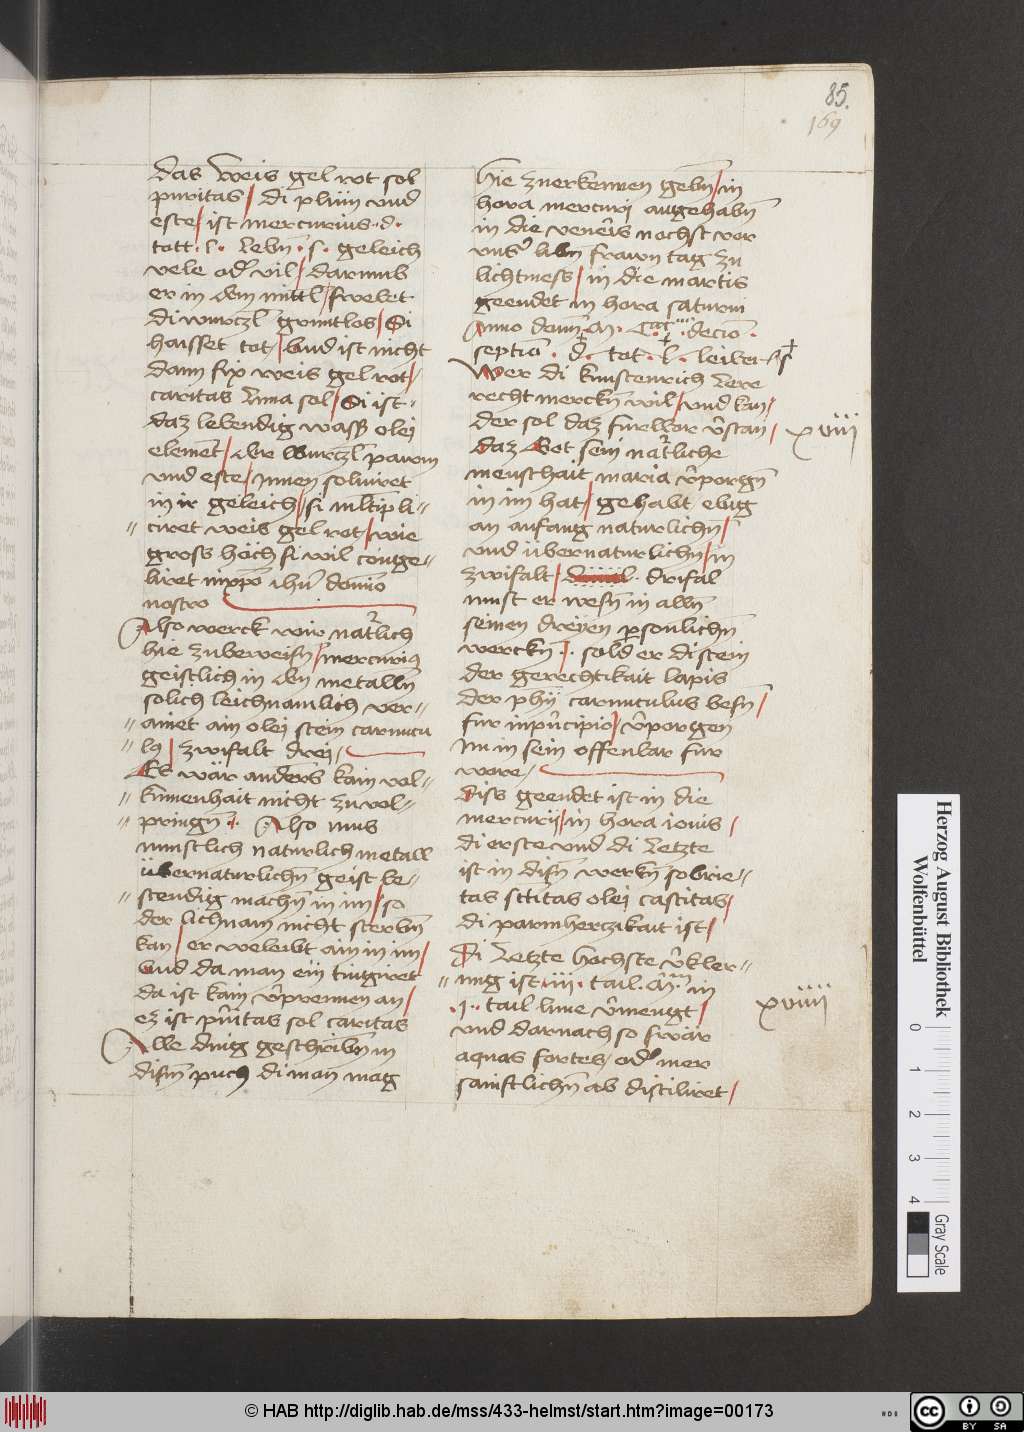 85.
169
das weis gel rot sol
puritas / di pluͤn vnd
este / ist mercurius · d ·
tott · l · lebn̄ · s · geleich
vele od' vil / darumb
er in dem mittl / swebet
di wurczl gruntlos / Si
haisset tot / Vnd ist nicht
dann fix weis gel rot /
caritas luna sol / Si ist
daz lebendig wasser olei
element / der wurczl pawm
vnd este / Innen soluiret
in ir geleich / si multipli=
ciret weis gel rot / wie
gross hoͤch si wil conge=
liret
nostro
Also werck wir natͬlich
hie zubeweisn̄ / mercurius
geistlich in den metalln̄
solich leichnamlich ver=
ainet ain olei stein carnucu
lus / zwifalt drei /
Es waͤr anders kain vol=
kumenhait nicht zuvol=
pringn̄ · Also mus
kunstlich naturlich metall
uͤbernaturlichn̄ geist be=
stendig machn̄ in im / so
der lichnam nicht sterbn̄
kan / er beleibt ain in im /
Vnd da man ein tingiret
da ist kain v̄prennen an /
ez ist pūritas sol caritas
Alle ding geschribn̄ in
disem puch di man mag
hie zuerkennen gebn̄ / in
hora mercurij angehabn̄
in die veneris nachst vor
vns' libn̄ frawn tag zu
lichtmess / in die martis
geendet in hora saturni
Anno domī M · CCCC · decīo ·
septīo · d · tot · l · leiber · s
Wer di kunstenrich lere
recht merckn̄ wil / vnd kan /
der sol daz furwar v̄stan /
xviii
Daz Got sein natͬliche
menschait maria v̄porgn̄
in im hat / gehabt ebig
an anfang naturlichn̄ /
vnd uͤbernaturlichn̄ / in
zwifalt / drifal
must er wesn̄ in alln̄
seinen dreyen p̄sonlichn̄
werckn̄ · sold er di stein
der gerechtikait lapis
der phij carnuculus besn̄ /
fur inp̄ncipio / v̄porgen
Im in sein offenbar fur
ware /
Diss geendet ist in die
mercurij / in hora iouis /
di erste vnd di letzte
ist in disn̄ werkn̄ sobrie=
tas sctitas olei castitas /
di parmherczikait ist /
Di letzte hochste v̄kler=
ung ist · iiii · tail · in
· j · tail lune v̄mengt /
xviiii
vnd darnach so swaͤr
aquas fortes / od' mer
sainftlichn̄ ab distiliret /
Herzog August Bibliothek
Wolfenbüttel
0 1 2 3 4
Gray Scale
© HAB http://diglib.hab.de/mss/433-helmst/start.htm?image=00173
HAB
cc BY SA